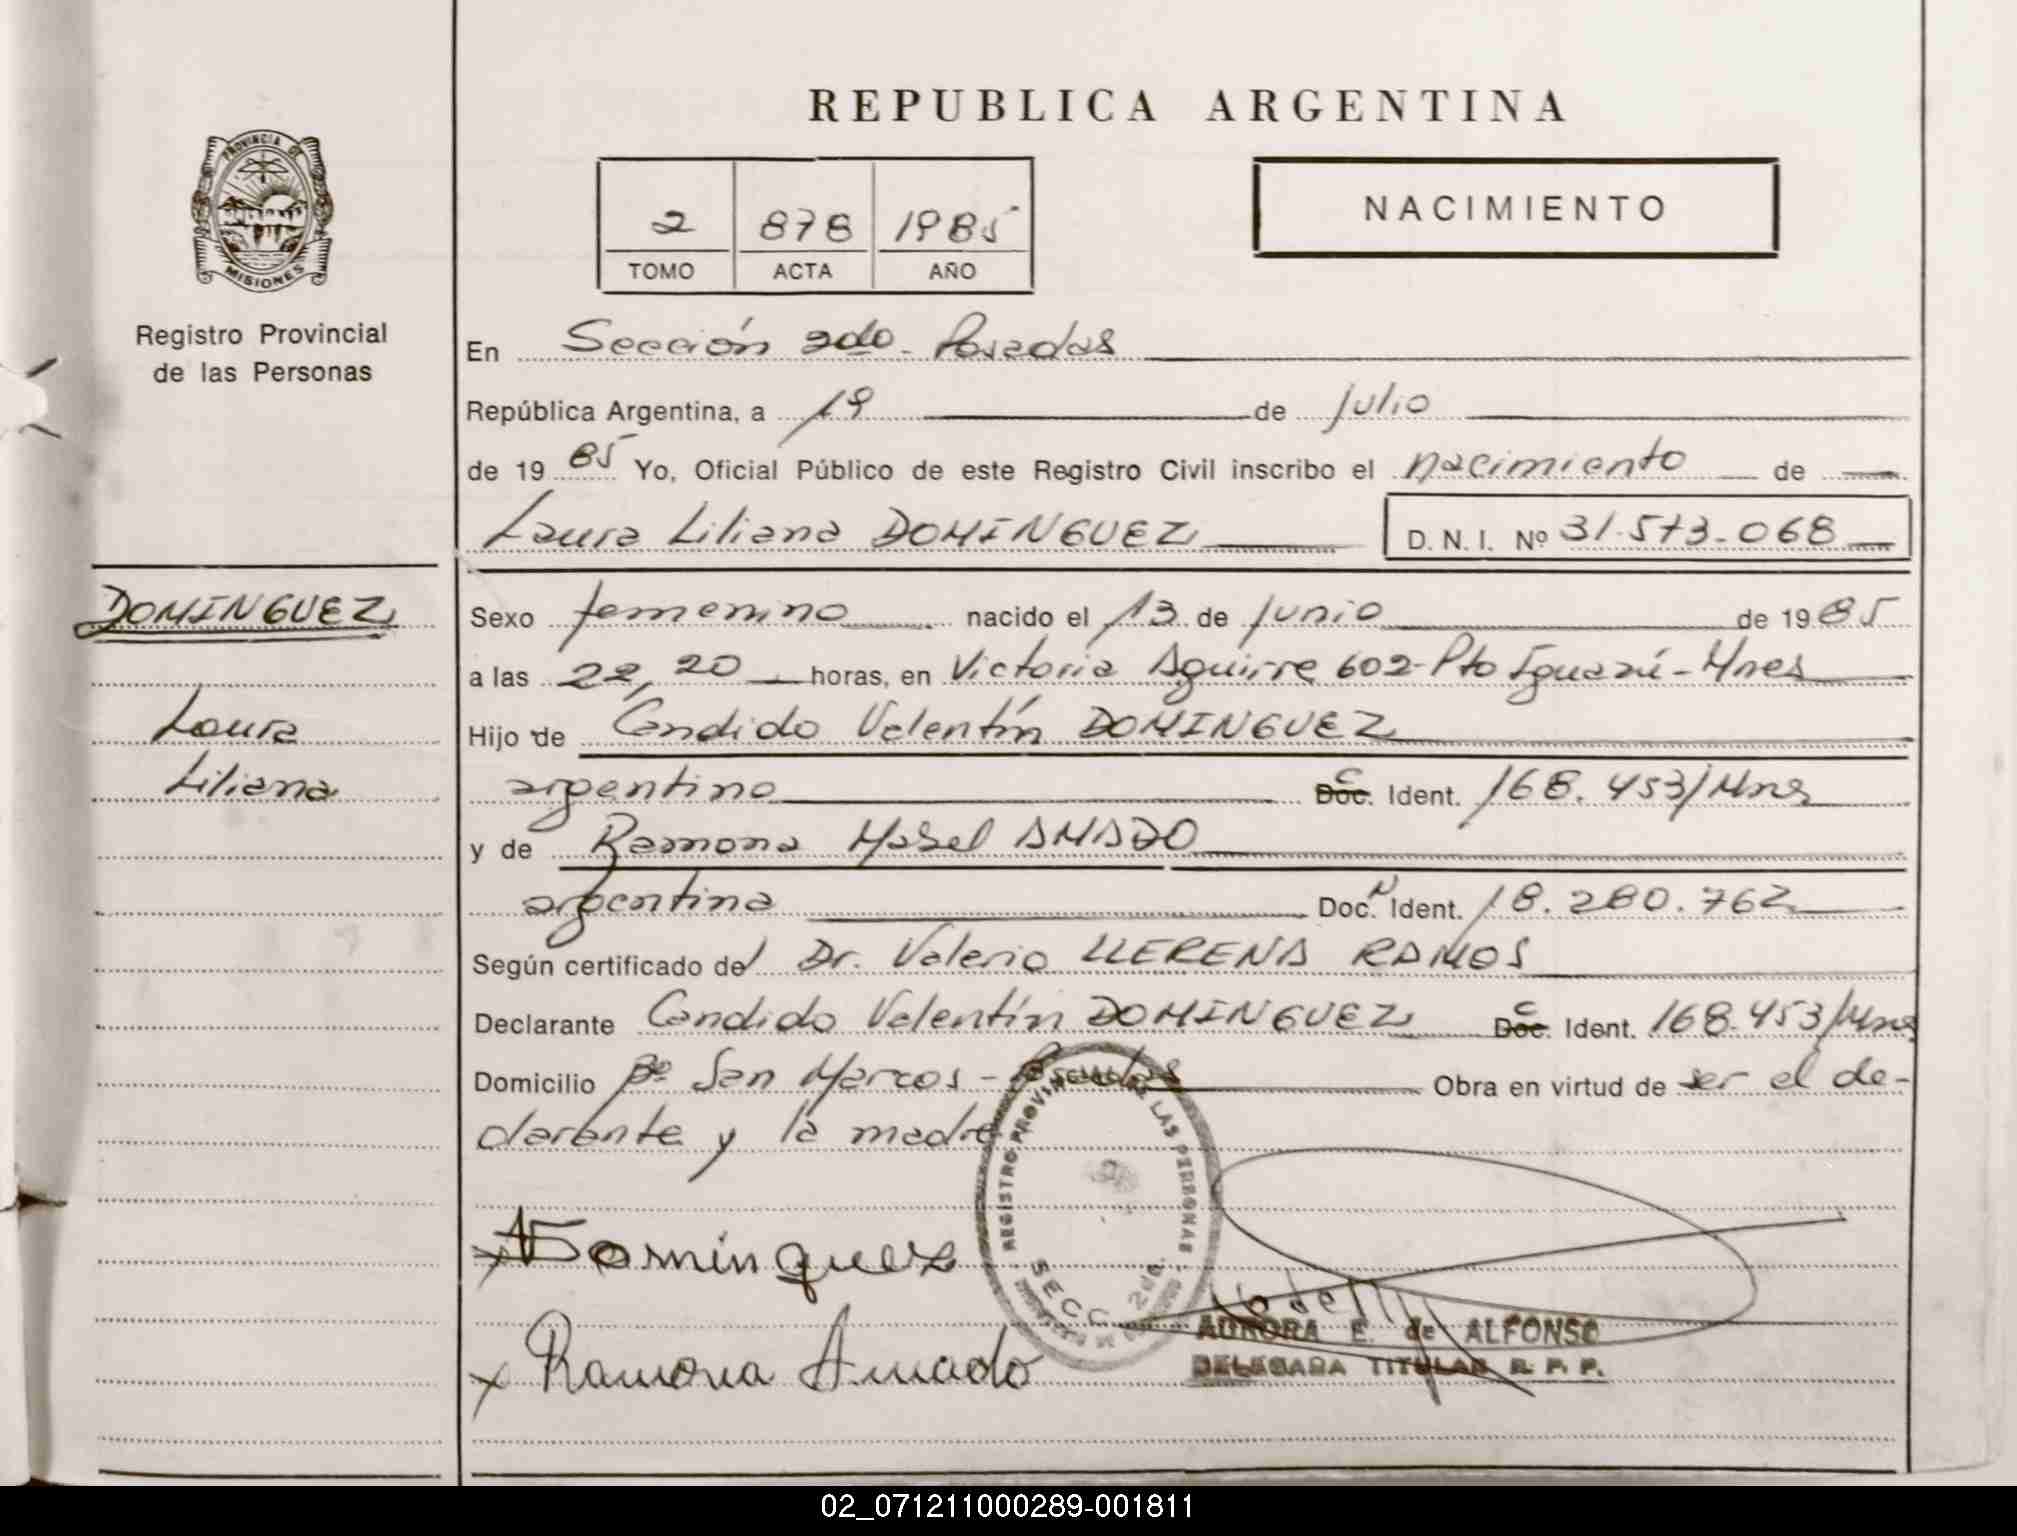 REPUBLICA ARGENTINA
PROVINCIA DE
MISIONES
Registro Provincial
de las Personas
2 878 1985
TOMO ACTA AÑO
NACIMIENTO
En Sección 2da - Posadas
República Argentina, a 19 de julio
de 1985 Yo, Oficial Público de este Registro Civil inscribo el nacimiento de
Laura Liliana DOMINGUEZ D. N. I. Nº 31.573.068
DOMINGUEZ
Laura
Liliana
Sexo femenino nacido el 13 de junio de 1985
a las 22,20 horas, en Victoria Aguirre 602-Pto Iguazú-Mnes
Hijo de Candido Valentín DOMINGUEZ
argentino C Doc. Ident. 168.453/Mnes
y de Ramona Mabel AMADO
argentina Doc. N Ident. 18.280.762
Según certificado del Dr. Valerio LLERENA RAMOS
Declarante Candido Valentín DOMINGUEZ C Doc. Ident. 168.453/Mnes
Domicilio Bº San Marcos - Posadas Obra en virtud de ser el de-
clarante y la madre
REGISTRO PROVINCIAL DE LAS PERSONAS
SECC. 2da.
Dominguez
Ramona Amado
AURORA E. de ALFONSO
DELEGADA TITULAR R. P. P.
02_071211000289-001811